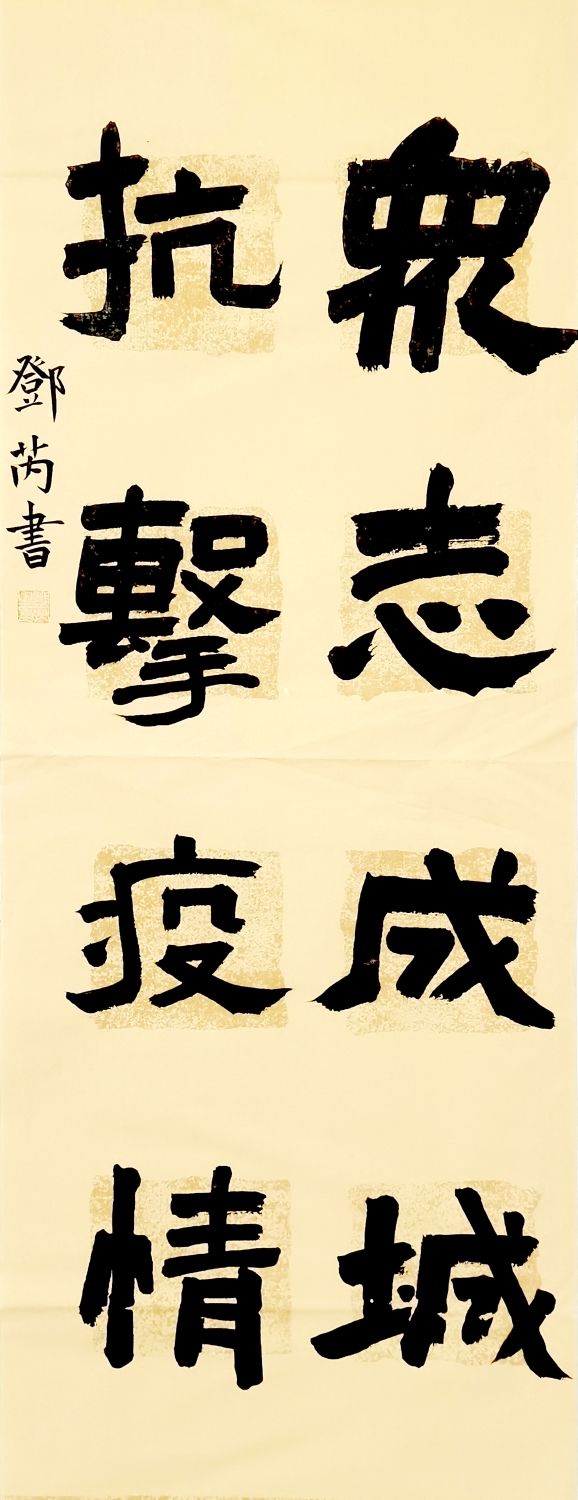 眾志成城
抗擊疫情
鄧芮書